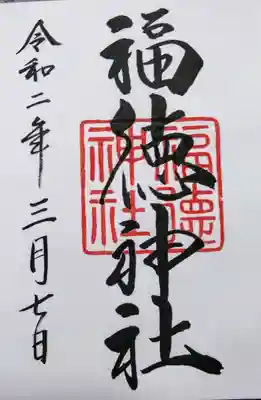 福徳神社
福徳神社
令和二年三月七日